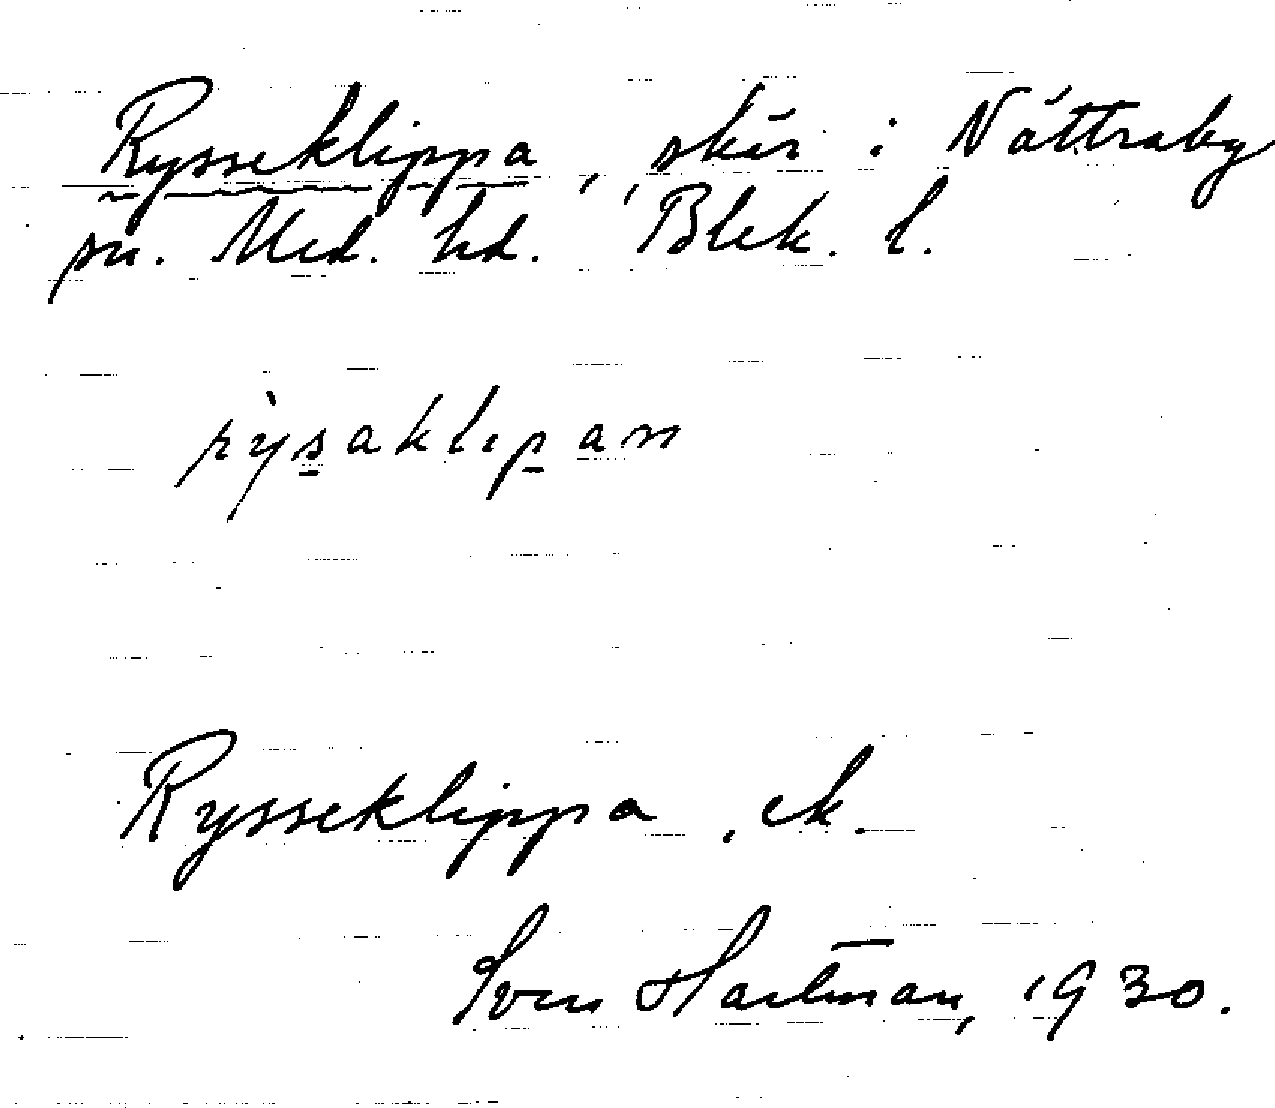 Rysseklippa, skär i Nättraby
sn. Med. hd. Blek. l.
rỳsaklıpan
Rysseklippa, ek.
Sven Hartman, 1930.